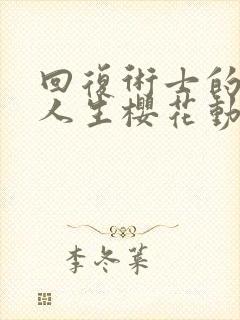 回復術士的
人生櫻花動
李冬菜